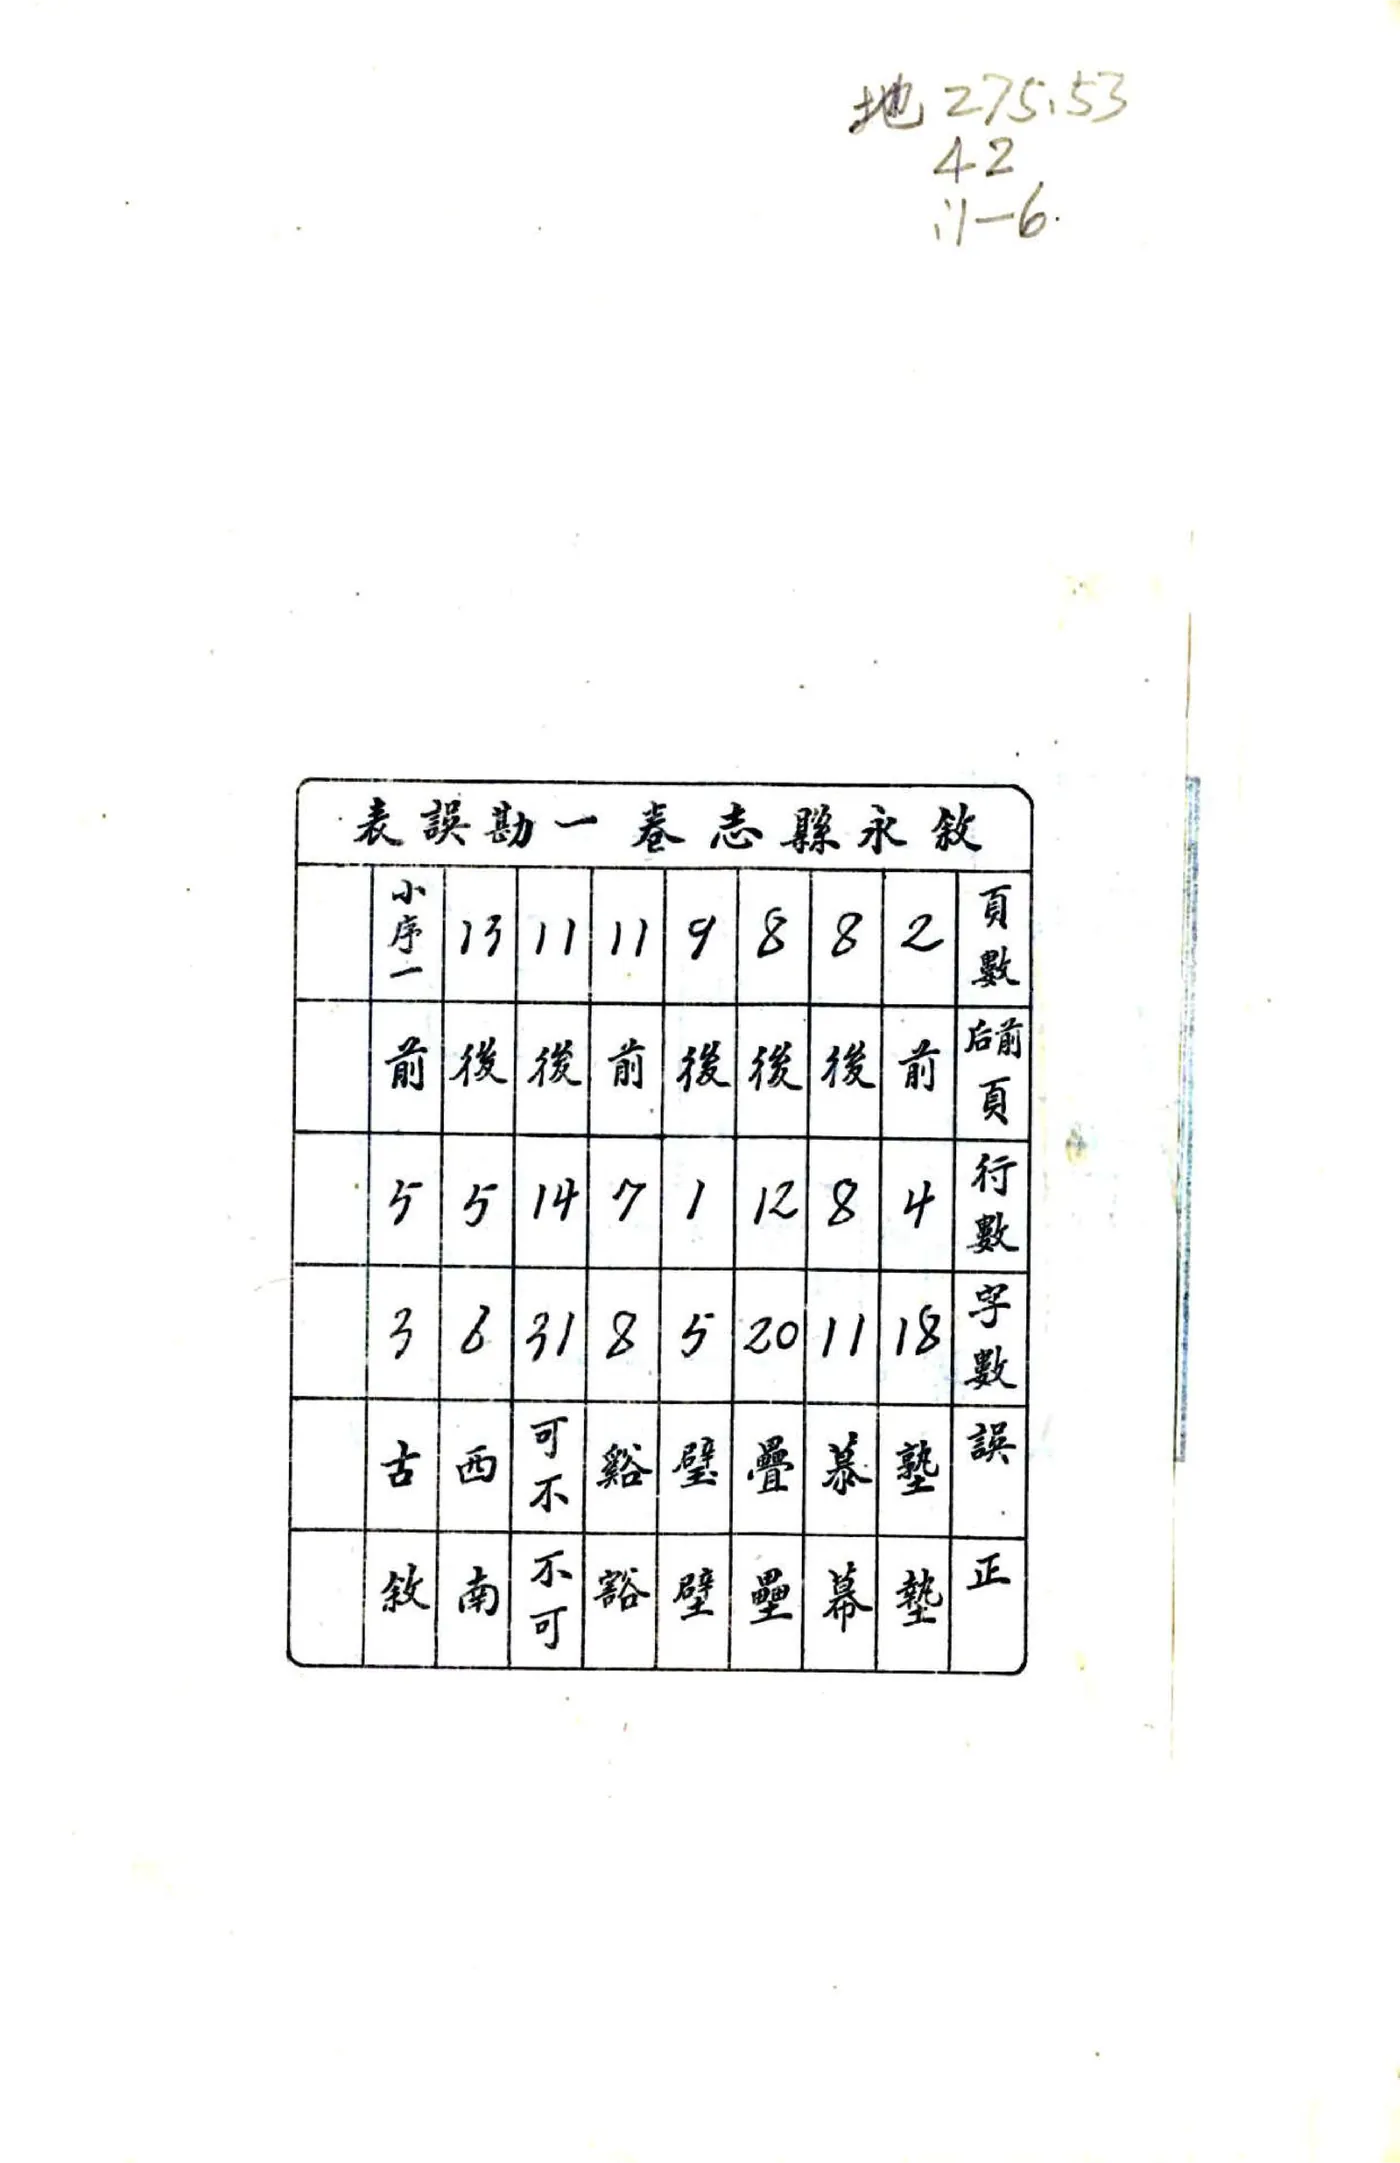 地 275.53
42
:1-6.
敘永縣志卷一勘誤表
頁數 前后頁 行數 字數 誤 正
2 前 4 18 塾 墊
8 後 8 11 慕 幕
8 後 12 20 疊 壘
9 後 1 5 璧 壁
11 前 7 8 谿 豁
11 後 14 31 可不 不可
13 後 5 8 西 南
小序一 前 5 3 古 敘